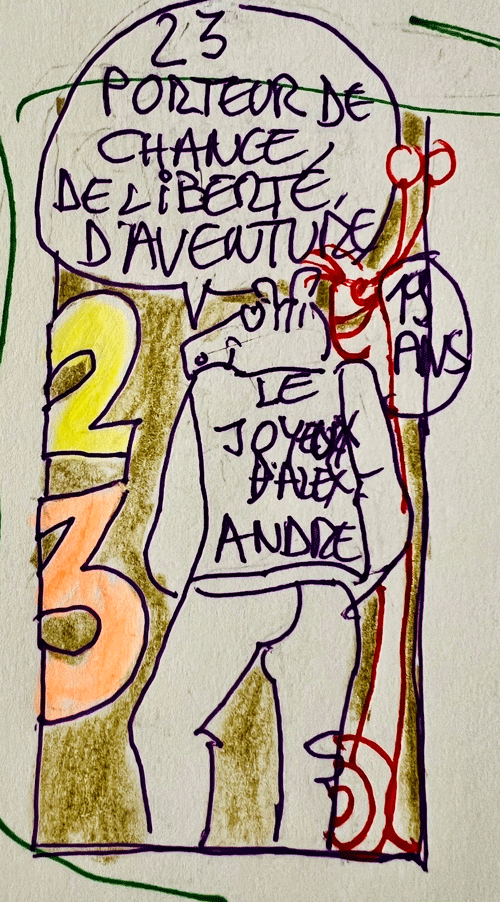 23
PORTEUR DE
CHANCE,
DE LIBERTÉ,
D'AVENTURE
2
3
19
ANS
LE
JOYEUX
D'ALEX
ANDRE